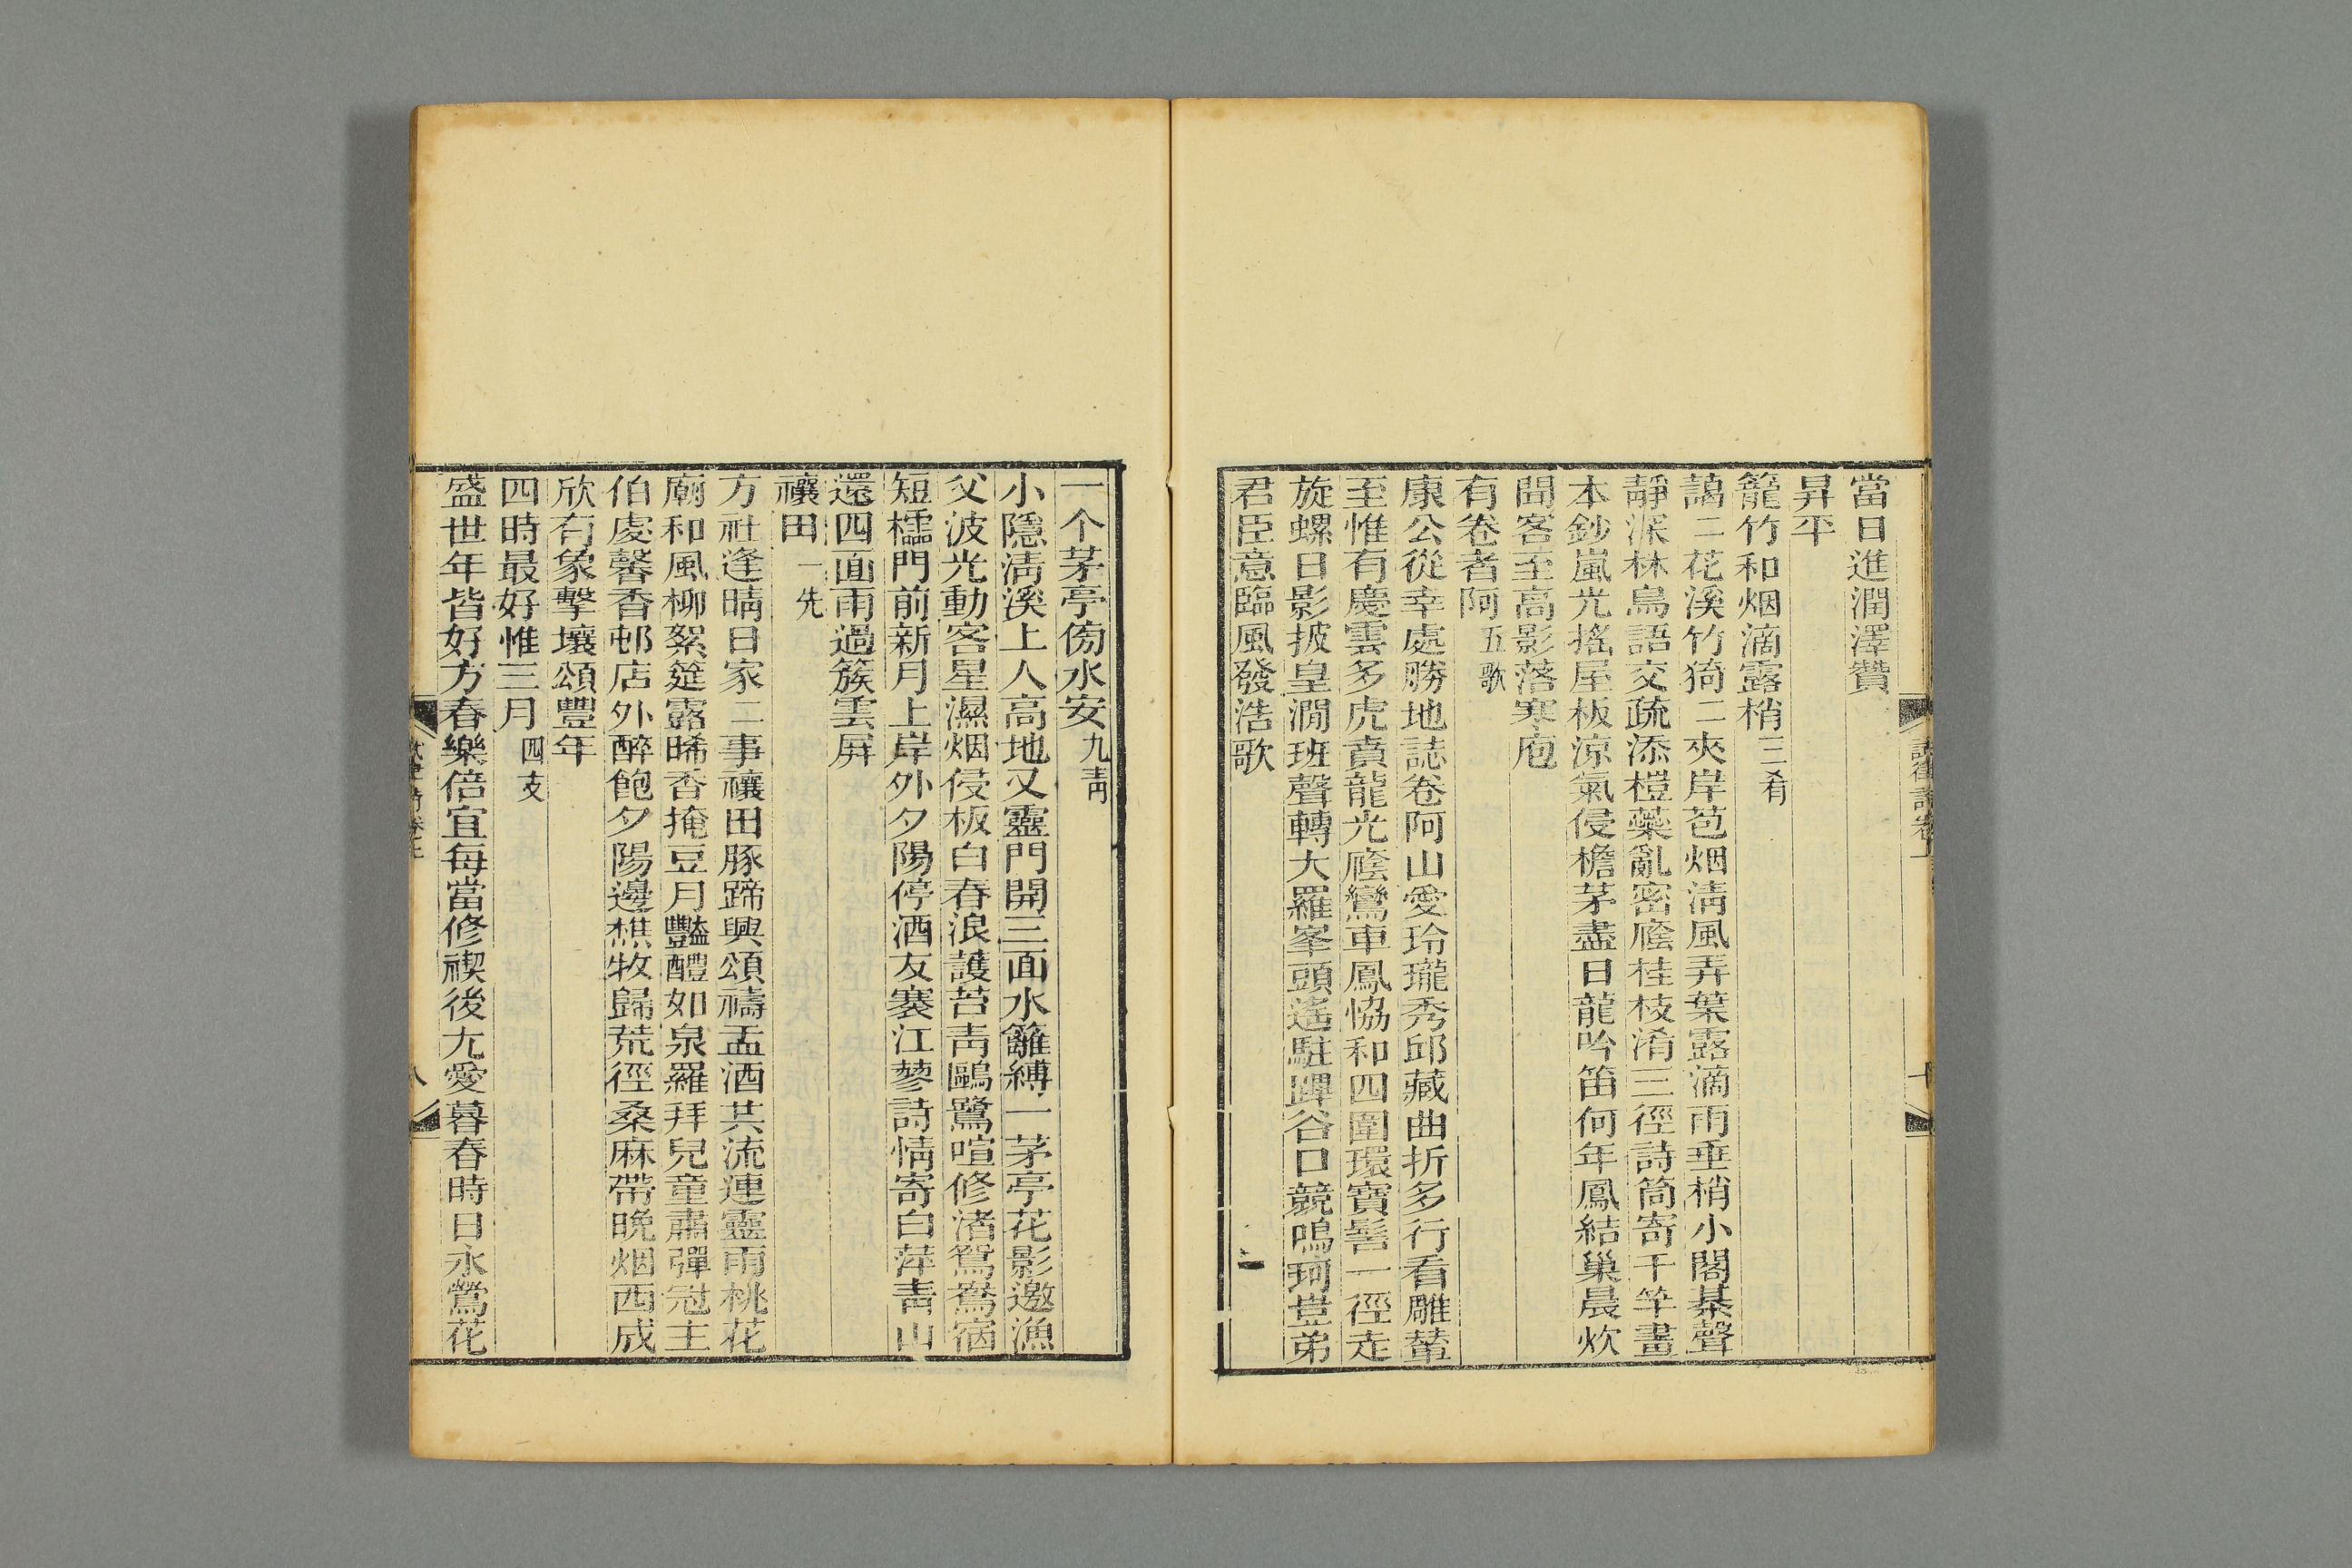 當日進潤澤贊
昇平
籠竹和烟滴露梢 三肴
藹二花溪竹猗二夾岸苞烟淸風弄葉露滴雨垂梢小閣棊聲
靜深林鳥語交疏添榿藥亂密廕桂枝淆三徑詩筒寄千竿畫
本鈔嵐光搖屋板涼氣侵檐茅盡日龍吟笛何年鳳結巢晨炊
閒客至高影落寒庖
有卷者阿 五歌
康公從幸處勝地誌卷阿山愛玲瓏秀邱藏曲折多行看雕輦
至惟有慶雲多虎賁龍光廕鸞車鳳恊和四圍環寶髻一徑走
旋螺日影披皇澗班聲轉大羅峯頭遙駐蹕谷口競鳴珂豈弟
君臣意臨風發浩歌
二
一个茅亭傍水安 九靑
小隱淸溪上人高地又靈門開三面水籬縛一茅亭花影邀漁
父波光動客星濕烟侵板白春浪護苔靑鷗鷺喧修渚鴛鴦宿
短櫺門前新月上岸外夕陽停酒友褰江蓼詩情寄白萍靑山
還四面雨過簇雲屏
禳田 一先
方社逢晴日家二事禳田豚蹄興頌禱盂酒共流連靈雨桃花
廟和風柳絮筵露晞香掩豆月豔醴如泉羅拜兒童肅彈冠主
伯處馨香邨店外醉飽夕陽邊樵牧歸荒徑桑麻帶晚烟西成
欣有象擊壤頌豐年
四時最好惟三月 四支
盛世年皆好方春樂倍宜每當修禊後尤愛暮春時日永鶯花
八